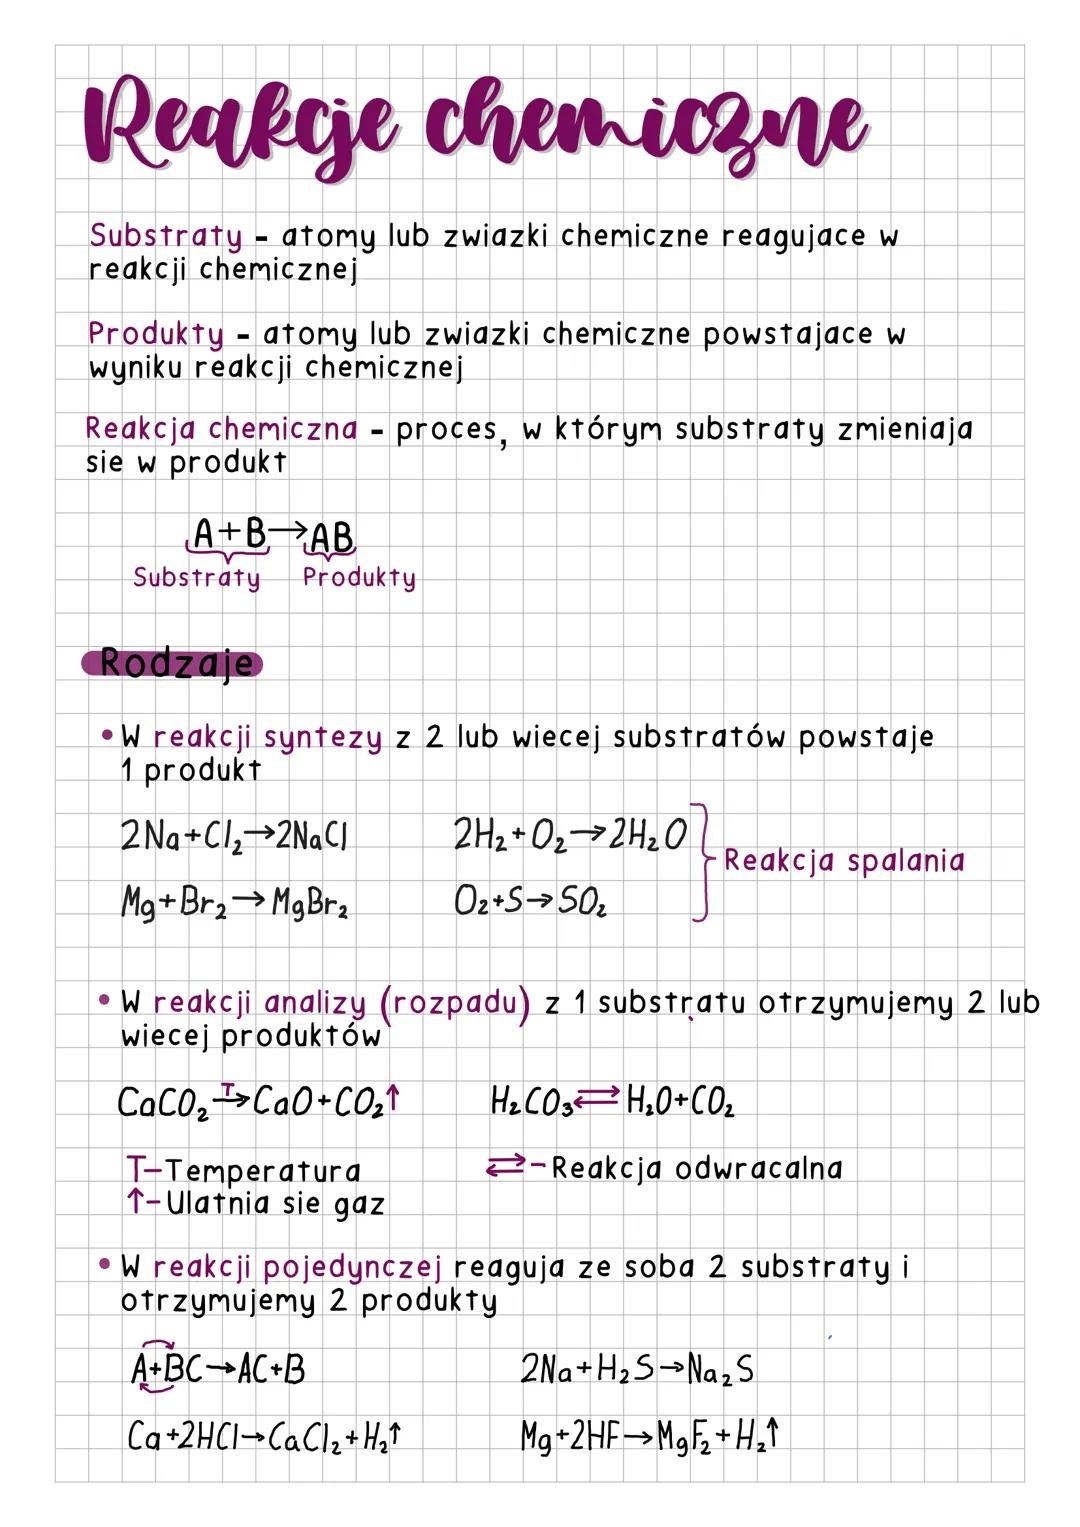 Reakcje chemiczne
Substraty - atomy lub zwiazki chemiczne reagujace w
reakcji chemicznej
Produkty - atomy lub zwiazki chemiczne powstajace w
wyniku reakcji chemicznej
Reakcja chemiczna - proces, w którym substraty zmieniaja
sie w produkt
A+B→AB
Substraty Produkty
Rodzaje
• W reakcji syntezy z 2 lub wiecej substratów powstaje
1 produkt
2Na+Cl₂→2NaCl 2H₂+O₂→2H₂O
Reakcja spalania
Mg+Br₂→MgBr₂ O₂+S→SO₂
• W reakcji analizy (rozpadu) z 1 substratu otrzymujemy 2 lub
wiecej produktów
CaCO₂ T→ CaO+CO₂↑ H₂CO₃⇄H₂O+CO₂
T-Temperatura ⇄-Reakcja odwracalna
↑-Ulatnia sie gaz
• W reakcji pojedynczej reaguja ze soba 2 substraty i
otrzymujemy 2 produkty
A+BC→AC+B 2Na+H₂S→Na₂S
Ca+2HCl→CaCl₂+H₂↑ Mg+2HF→MgF₂+H₂↑